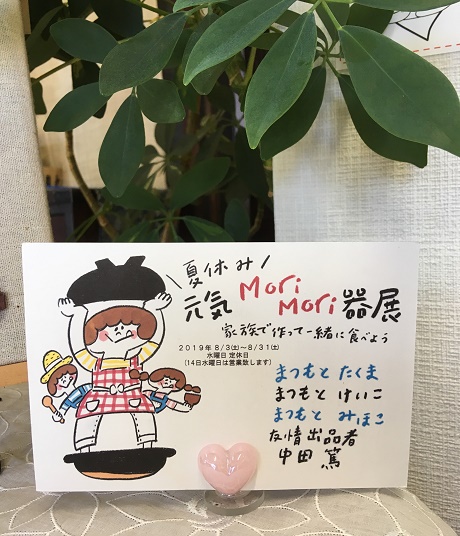 夏休み
元気 Mori Mori 器展
家族で作って一緒に食べよう
2019年8/3(土)~8/31(土)
水曜日 定休日
(14日水曜日は営業致します)
まつもと たくま
まつもと けいこ
まつもと みほこ
友情出品者
中田 篤